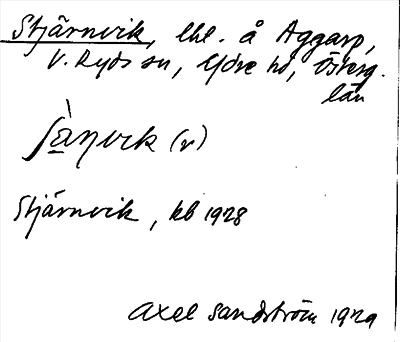 Stjärnvik, lhl. å Aggarp,
V. Ryds sn, Ydre hd, Österg.
län
ʃàŋvik (v)
Stjärnvik, kb 1928
Axel Sandström 1929